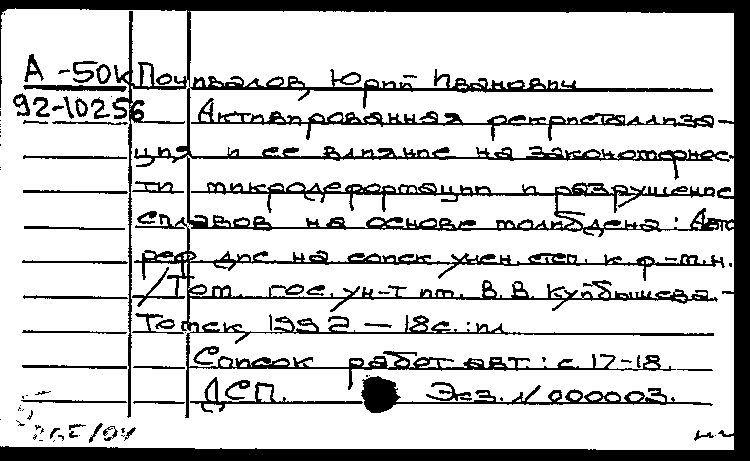 А-50к Почивалов, Юрий Иванович
92-10256 Активированная рекристаллиза-
ция и ее влияние на закономернос-
ти микродеформации и разрушение
сплавов на основе молибдена: Авто
реф. дис. на соиск. учен. степ. к. ф.-м.н.
/Том. гос. ун-т им. В. В. Куйбышева.-
Томск, 1992. - 18с.:ил
Список работ авт.: с. 17-18.
ДСП. Экз. N 000003.